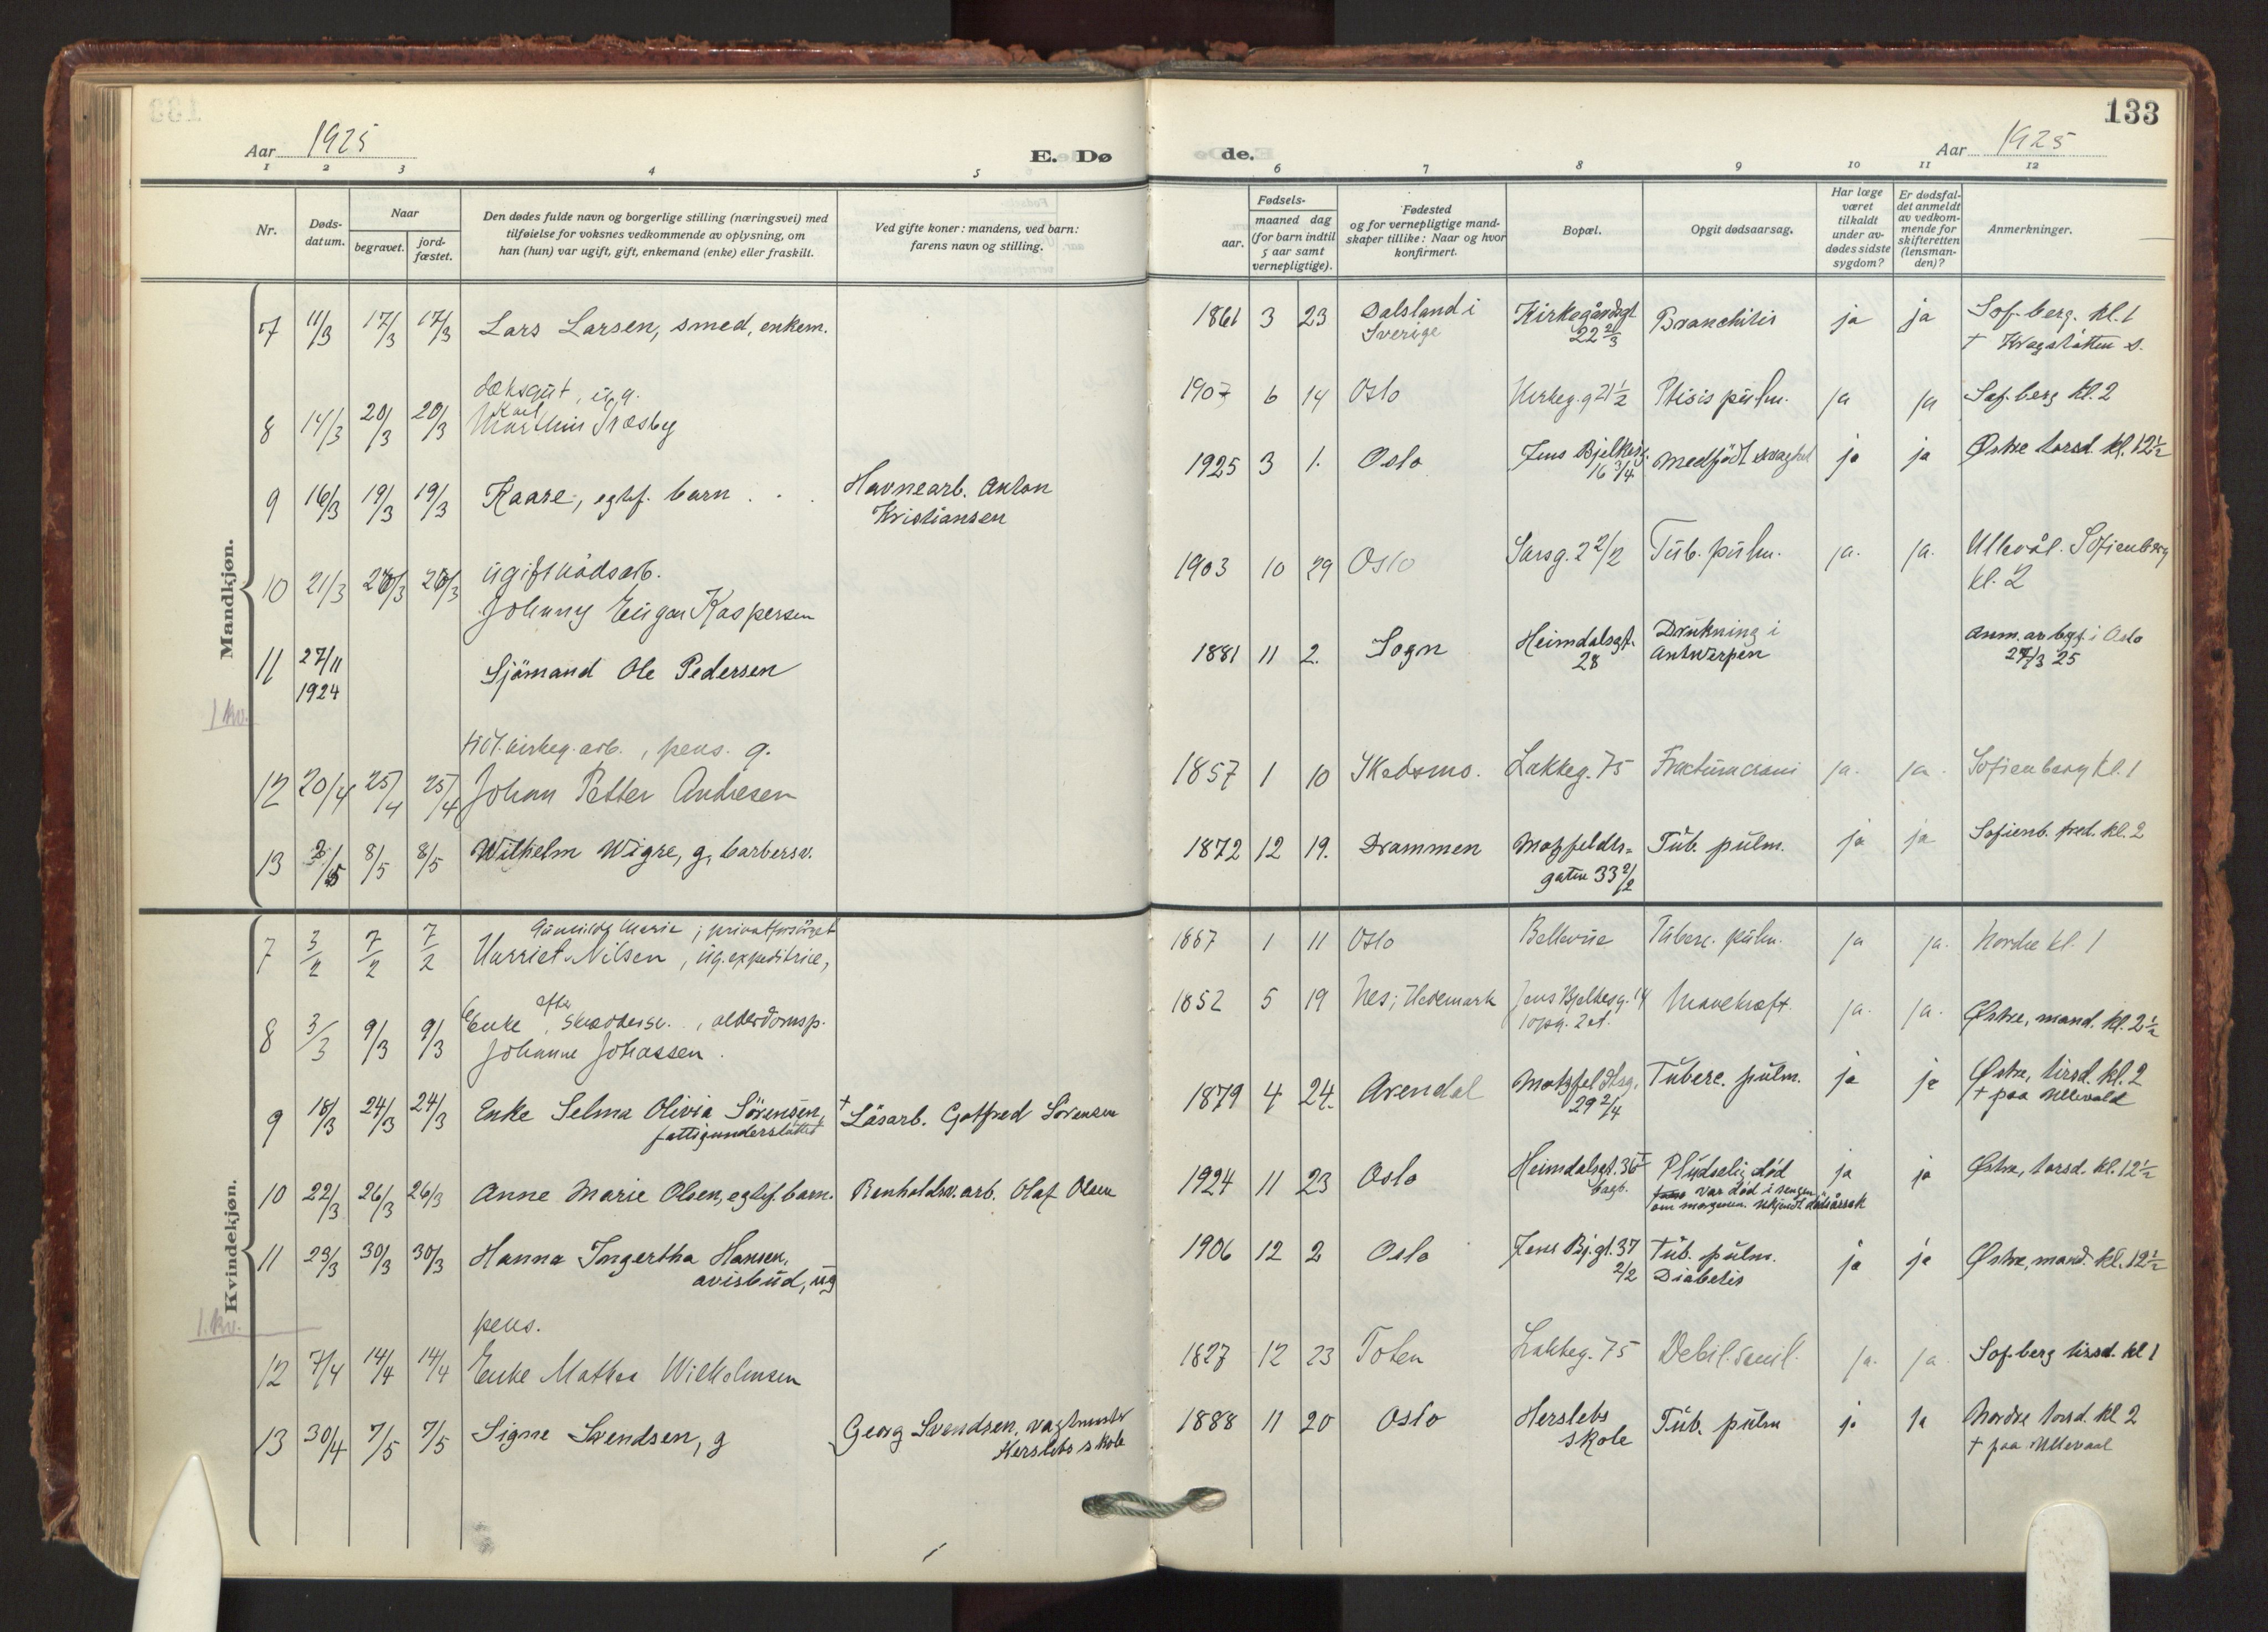 133
Aar 1925
E. Dø
de.
Aar 1925
1 2 3 4 5 6 7 8 9 10 11 12
Nr.
Døds-
datum.
Naar
begravet.
jord-
fæstet.
Den dødes fulde navn og borgerlige stilling (næringsvei) med
tilføielse for voksnes vedkommende av oplysning, om
han (hun) var ugift, gift, enkemand (enke) eller fraskilt.
Ved gifte koner: mandens, ved barn:
farens navn og stilling.
Fødsels-
aar.
maaned dag
(for barn indtil
5 aar samt
vernepligtige).
Fødested
og for vernepligtige mand-
skaper tillike: Naar og hvor
konfirmert.
Bopæl.
Opgit dødsaarsag.
Har læge
været
tilkaldt
under av-
dødes sidste
sygdom?
Er dødsfal-
det anmeldt
av vedkom-
mende for
skifteretten
(lensman-
den)?
Anmerkninger.
Mandkjøn.
7 11/3 17/3 17/3 Lars Larsen, smed, enkem. 1861 3 23 Dalsland i Kirkegårdsgt Bronchitis ja ja Sof. berg. kl. 1
Sverige 22 2/3 † Krogstøtten s.
dæksgut, ug.
Karl
8 14/3 20/3 20/3 Marthin Træsby 1907 6 14 Oslo Kirkeg. g 21 1/2 Ptisis pulm. ja ja Sof. berg kl. 2
9 16/3 19/3 19/3 Kaare, egtef. barn Havnearb. Anton 1925 3 1. Oslo Jens Bjelkesg. Medfödt svaghet ja ja Østre torsd. kl. 12 1/2
Kristiansen 16 3/4
ugift
10 21/3 26/3 26/3 Johnny Kaspersen 1903 10 29 Oslo Sarsg. 2 2/2 Tub. pulm. ja. ja. Ullevål. Sofienberg
kl. 2
11 27/11 Sjömand Ole Pedersen 1881 11 2. Sogn Heimdalsgt. Drukning i Anm. av bgf. i Oslo
1924 28 Antwerpen 27/3 25
1 kv.
kirkeg. arb., pens. g.
12 20/4 25/4 25/4 Johan Petter Andresen 1857 1 10 Skedsmo. Lakkeg. 75 Fractura crani ja. ja. Sofienberg kl. 1
13 2/5 8/5 8/5 Wilhelm Wigre, g, barbersv. 1872 12 19. Drammen Motzfeldts- Tub. pulm. ja ja Sofienb. fred. kl. 2
gaten 33 2/2
Kvindekjøn.
Gunhilda Marie; privatforsörget
7 3/2 7/2 7/2 Harriet Nilsen, ug. expeditrice, 1867 1 11 Oslo Bellevue Tuberc. pulm. ja ja. Nordre kl. 1
8 3/3 9/3 9/3 Enke efter , alderdomsp. 1852 5 19 Nes; Hedemark Jens Bjelkesg. 14 Mavekræft ja. ja. Østre, mand. kl. 2 1/2
Johanne Johassen. opg. 2 et.
9 18/3 24/3 24/3 Enke Selma Olivia Sörensen, † Låsarb. Gotfred Sörensen 1879 4 24. Arendal Motzfeldtsg. Tuberc. pulm. ja ja Østre, tirsd. kl. 2
fattigunderstöttet 29 2/4 † paa Ullevold
10 22/3 26/3 26/3 Anne Marie Olsen, egtef. barn. Renholdsv. arb. Olaf Olsen 1924 11 23 Oslo Heimdalsgt. 36 Pludselig död ja ja Østre, torsd. kl. 12 1/2
bagb. var död i sengen
om morgenen. Ukjendt dödsårsak
11 23/3 30/3 30/3 Hanna Ingertha Hansen, 1906 12 2 Oslo Jens Bj. gt. 37 Tub. pulm. ja ja Østre, mand. kl. 12 1/2
avisbud, ug 2/2 Diabetis
1. kv.
pens.
12 7/4 14/4 14/4 Enke Mathea Wilhelmsen 1827 12 23 Toten Lakkeg. 75 Debil. senil. ja. ja. Sof. berg tirsd. kl 1
13 30/4 7/5 7/5 Signe Svendsen, g Georg Svendsen, vagtmester 1888 11 20 Oslo Herslebs Tub. pulm ja ja Nordre torsd. kl 2
Herslebs skole skole † paa Ullevaal